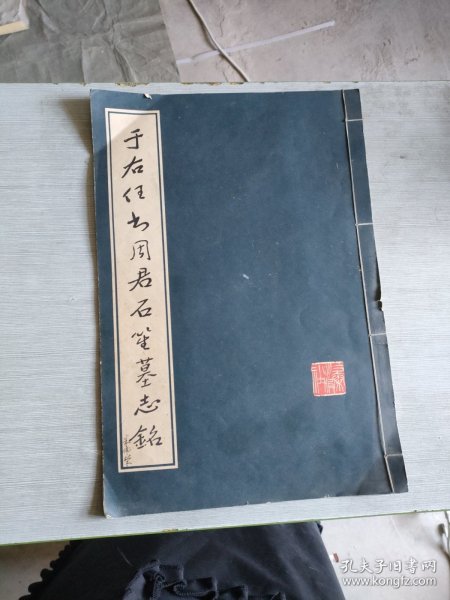 于右任书周君石笙墓志銘
孔夫子旧书网
www.kongfz.com